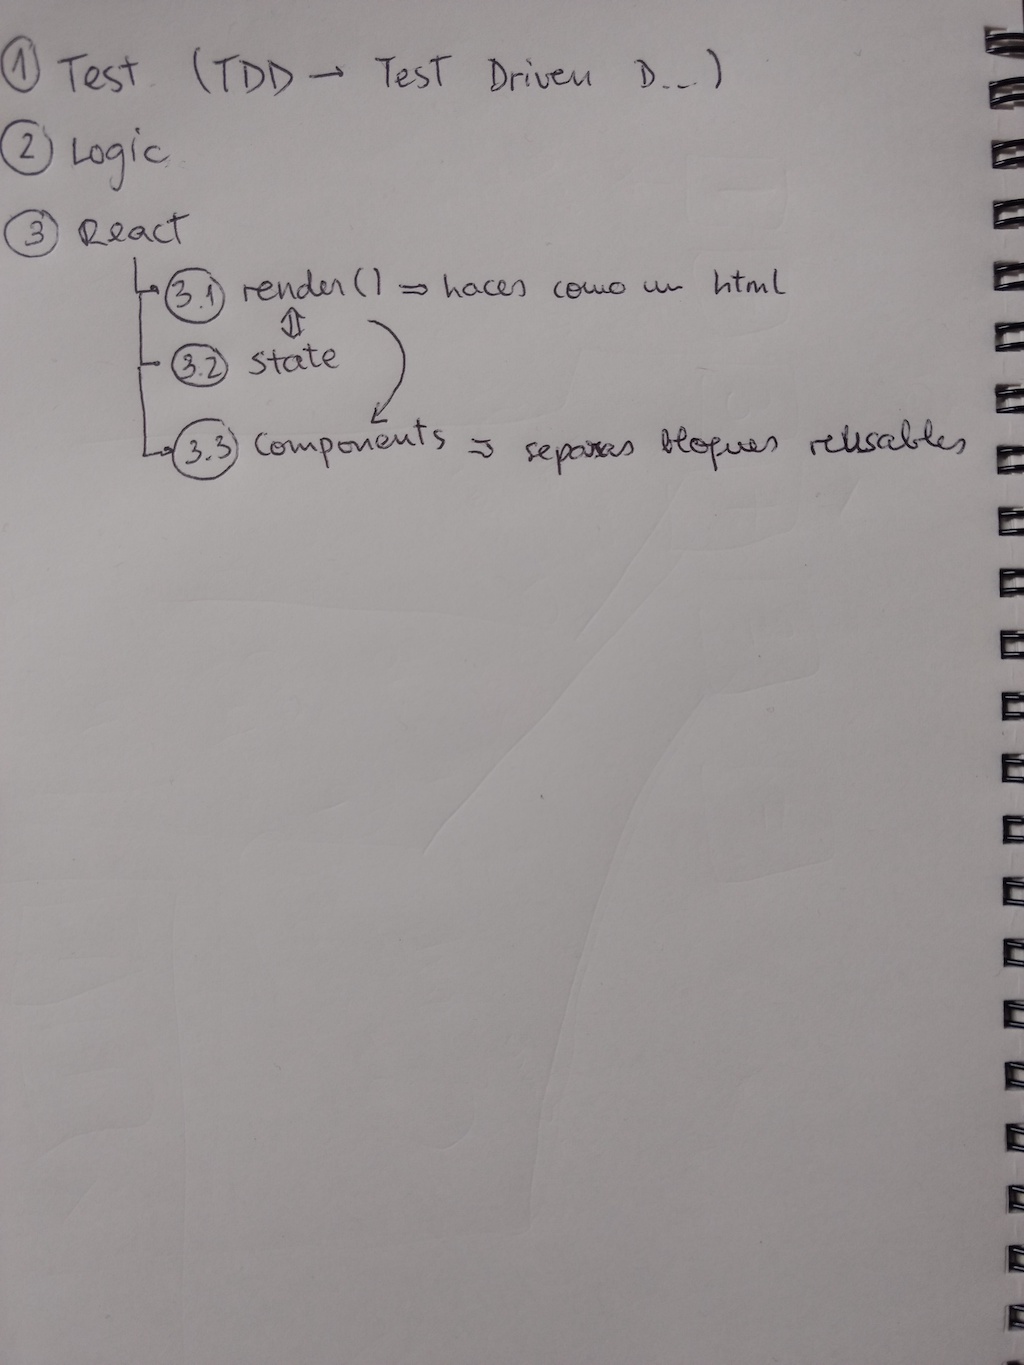 ① Test (TDD → Test Driven D...)
② Logic
③ React
3.1 render() ⇒ haces como un html
3.2 state
3.3 Components ⇒ separas bloques reusables